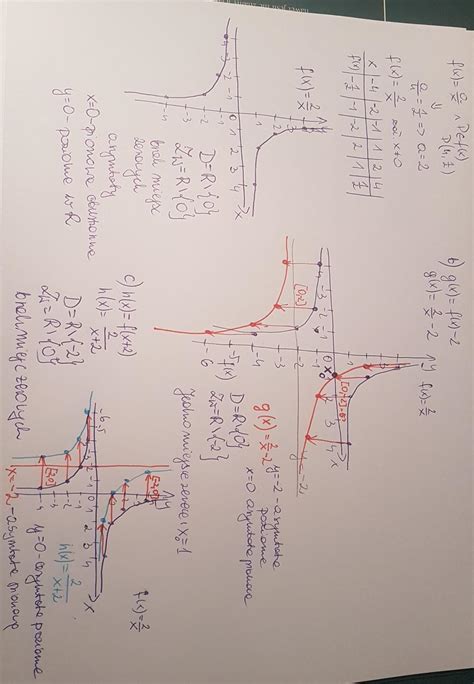 f(x)=a/x ∧ P∈f(x)
P(4, ½)
a/4 = 1/2 ⇒ a=2
f(x)=2/x zał x≠0
x -4 -2 -1 1 2 4
f(x) -½ -1 -2 2 1 ½
f(x)=2/x
D=R\{0}
Zw=R\{0}
brak miejsc zerowych
asymptoty
x=0-pionowa obustronna
y=0-pozioma w R
b) g(x)=f(x)-2
g(x)=2/x -2
f(x)=2/x
[0,-2]
y=-2
g(x)=2/x-2
y=-2-asymptota pozioma
x=0 asymptota pionowa
D=R\{0}
Zw=R\{-2}
Jedno miejsce zerowe x₀=1
c) h(x)=f(x+2)
h(x)=2/(x+2)
D=R\{-2}
Zw=R\{0}
brak miejsc zerowych
f(x)=2/x
[-2,0]
h(x)=2/(x+2)
y=0-asymptota pozioma
x=-2-asymptota pionowa